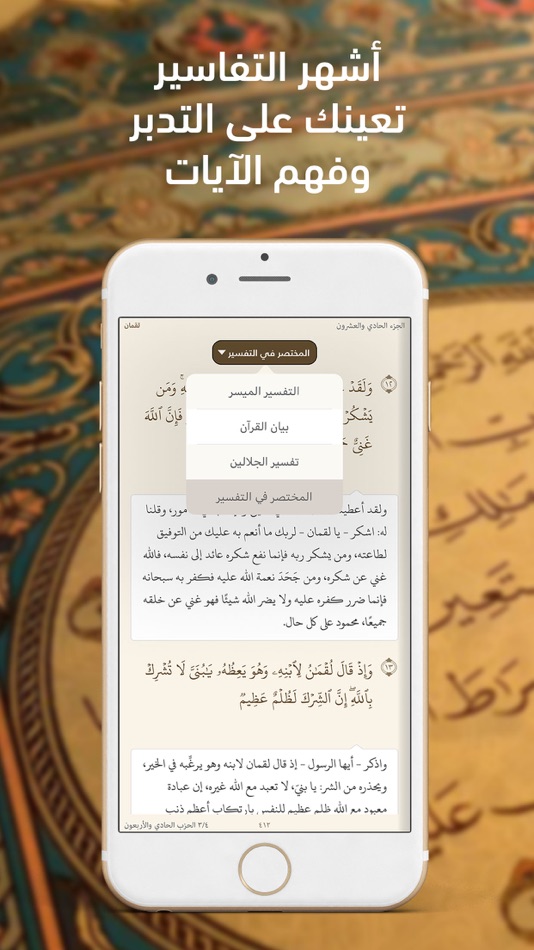 أشهر التفاسير
تعينك على التدبر
وفهم الآيات
الجزء الحادي والعشرون
لقمان
المختصر في التفسير
التفسير الميسر
بيان القرآن
تفسير الجلالين
المختصر في التفسير
١٢ وَلَقَدْ وَمَن
يَشْكُرْ فَإِنَّ ٱللَّهَ
غَنِىٌّ
ولقد أعطينا مور، وقلنا
له: اشكر - يا لقمان - لربك ما أنعم به عليك من التوفيق
لطاعته، ومن يشكر ربه فإنما نفع شكره عائد إلى نفسه، فالله
غني عن شكره، ومن جَحَدَ نعمة الله عليه فكفر به سبحانه
فإنما ضرر كفره عليه ولا يضر الله شيئًا فهو غني عن خلقه
جميعًا، محمود على كل حال.
١٣ وَإِذْ قَالَ لُقْمَٰنُ لِٱبْنِهِۦ وَهُوَ يَعِظُهُۥ يَٰبُنَىَّ لَا تُشْرِكْ
بِٱللَّهِۖ إِنَّ ٱلشِّرْكَ لَظُلْمٌ عَظِيمٌ
واذكر - أيها الرسول - إذ قال لقمان لابنه وهو يرغِّبه في الخير،
ويحذره من الشر: يا بنيّ، لا تعبد مع الله غيره، إن عبادة
معبود مع الله ظلم عظيم للنفس بارتكاب أعظم ذنب
٣/٤ الحزب الحادي والأربعون
٤١٢